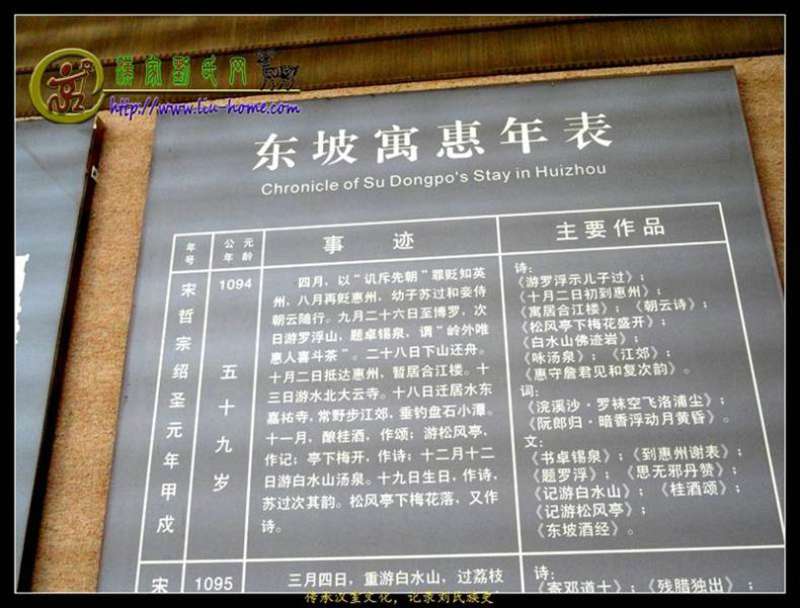 汉家刘氏网
http://www.liu-home.com
东坡寓惠年表
Chronicle of Su Dongpo's Stay in Huizhou
年号
公元年龄
事 迹
主要作品
宋哲宗绍圣元年甲戌
1094
五十九岁
四月，以“讥斥先朝”罪贬知英
州，八月再贬惠州，幼子苏过和妾侍
朝云随行。九月二十六日至博罗，次
日游罗浮山，题卓锡泉，谓“岭外唯
惠人喜斗茶”。二十八日下山还舟。
十月二日抵达惠州，暂居合江楼。十
三日游水北大云寺。十八日迁居水东
嘉祐寺，常野步江郊，垂钓盘石小潭。
十一月，酿桂酒，作颂；游松风亭，
作记；亭下梅开，作诗；十二月十二
日游白水山汤泉。十九日生日，作诗，
苏过次其韵。松风亭下梅花落，又作
诗。
诗：
《游罗浮示儿子过》；
《十月二日初到惠州》；
《寓居合江楼》；《朝云诗》；
《松风亭下梅花盛开》；
《白水山佛迹岩》；
《咏汤泉》；《江郊》；
《惠守詹君见和复次韵》。
词：
《浣溪沙·罗袜空飞洛浦尘》；
《阮郎归·暗香浮动月黄昏》。
文：
《书卓锡泉》；《到惠州谢表》；
《题罗浮》；《思无邪丹赞》；
《记游白水山》；《桂酒颂》；
《记游松风亭》；
《东坡酒经》。
宋
1095
三月四日，重游白水山，过荔枝
诗：
《寄邓道士》；《残腊独出》；
传承汉室文化，记录刘氏族史